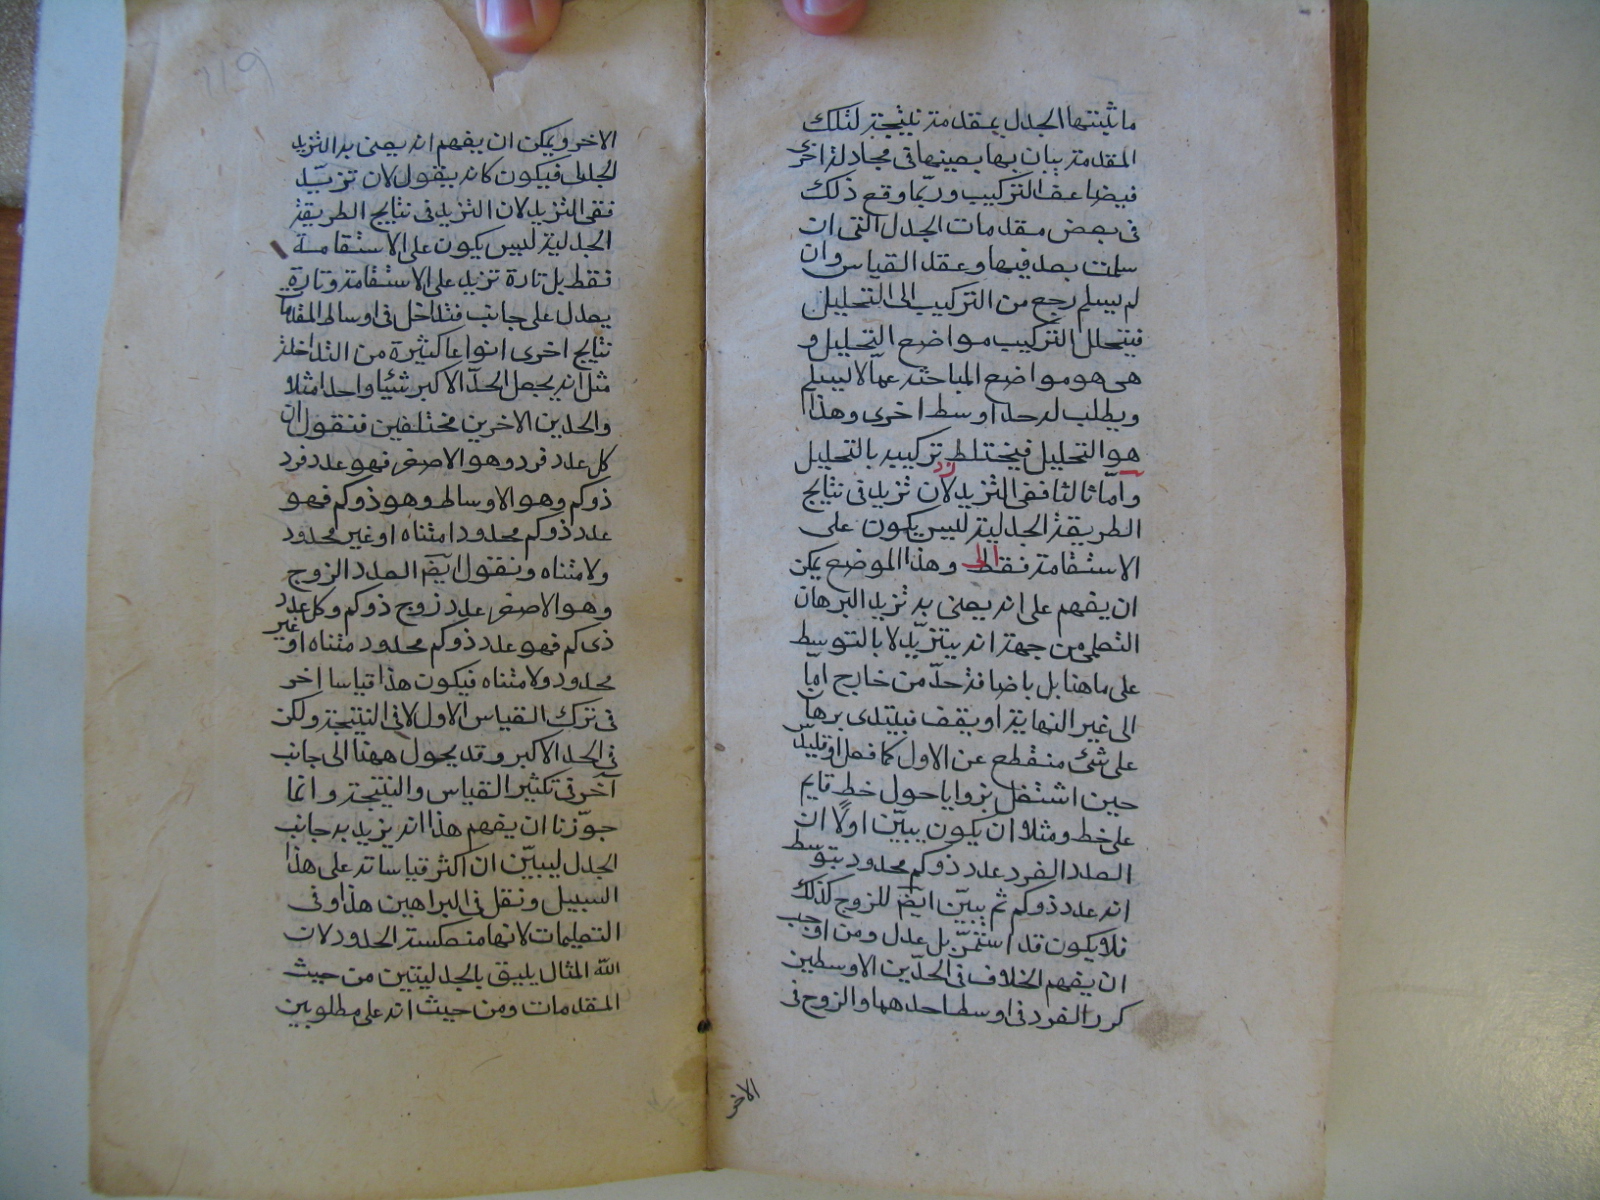 ما ثبتتها الجدل بمقدمة نتيجة لتلك
المقدمة ببان بها بعينها في مجادلة اخرى
فيضاعف التركيب وربّما وقع ذلك
في بعض مقدمات الجدل التي ان
سلمت بعد فيها وعقد القياس وان
لم يسلم رجع من التركيب الى التحليل
فيتحلل التركيب مواضع التحليل و
هى هو مواضع المباحثه عمّا لا يسلم
ويطلب له حدا وسط اخرى وهذا
هو التحليل فيختلط تركيبه بالتحليل
وامّا ثالثا ففى التزيد لان تزيد فى نتايج
الطريقة الجدلية ليس يكون على
الاستقامة فقط الى وهذا الموضع يمكن
ان يفهم على انه يعنى به تزيد البرهان
التعلمى من جهة انه يتزيّد لا بالتوسط
على ما هنا بل باضافة حدّ من خارج اما
الى غير النهاية او يقف فيبتدى برهان
على شئ منقطع عن الاول كما فعل اوقليدس
حين اشتغل بزوايا حول خط قايم
على خط ومثلا ان يكون يبيّن اولًا ان
العدد الفرد عدد ذو كم محدود بتوسط
انه عدد ذو كم ثم يبيّن ايضًا للزوج كذلك
فلا يكون قد استمرّ بل عدل ومن اوجب
ان يفهم الخلاف فى الحدّين الاوسطين
كرر الفرد فى اوسط احدهما والزوج فى
الاخر
الاخر ويمكن ان يفهم انه يعنى به التزيد
الجدلى فيكون كانه يقول لان تزيّد
ففى التزيد لان التزيد فى نتايج الطريقة
الجدلية ليس يكون على الاستقامة
فقط بل تارة تزيد على الاستقامة وتارة
يعدل على جانب فتداخل فى اوساط المقدمات
نتايج اخرى انواعا كثيرة من التداخلة
مثل انه يجعل الحدّ الاكبر شيئا واحدا مثلا
والحدين الاخرين مختلفين فنقول ان
كل عدد فرد وهو الاصغر فهو عدد فرد
ذو كم وهو الاوسط وهو ذو كم فهو
عدد ذو كم محدود امتناه او غير محدود
ولا متناه ونقول ايضًا العدد الزوج
وهو الاصغر عدد زوج ذو كم وكل عدد
ذى كم فهو عدد ذو كم محدود متناه او غير
محدود ولا متناه فيكون هذا قياسا اخر
فى ترك القياس الاول لا فى النتيجة ولكن
فى الحد الاكبر وقد يحول ههنا الى جانب
آخر فى تكثير القياس والنتيجة وانما
جوّزنا ان يفهم هذا انه يزيد به جانب
الجدل ليبيّن ان اكثر قياساته على هذا
السبيل ونقل فى البراهين هذا وفى
التعليمات لانها منعكسة الحدود لان
المثال يليق بالجدليتين من حيث
المقدمات ومن حيث انه على مطلوبين